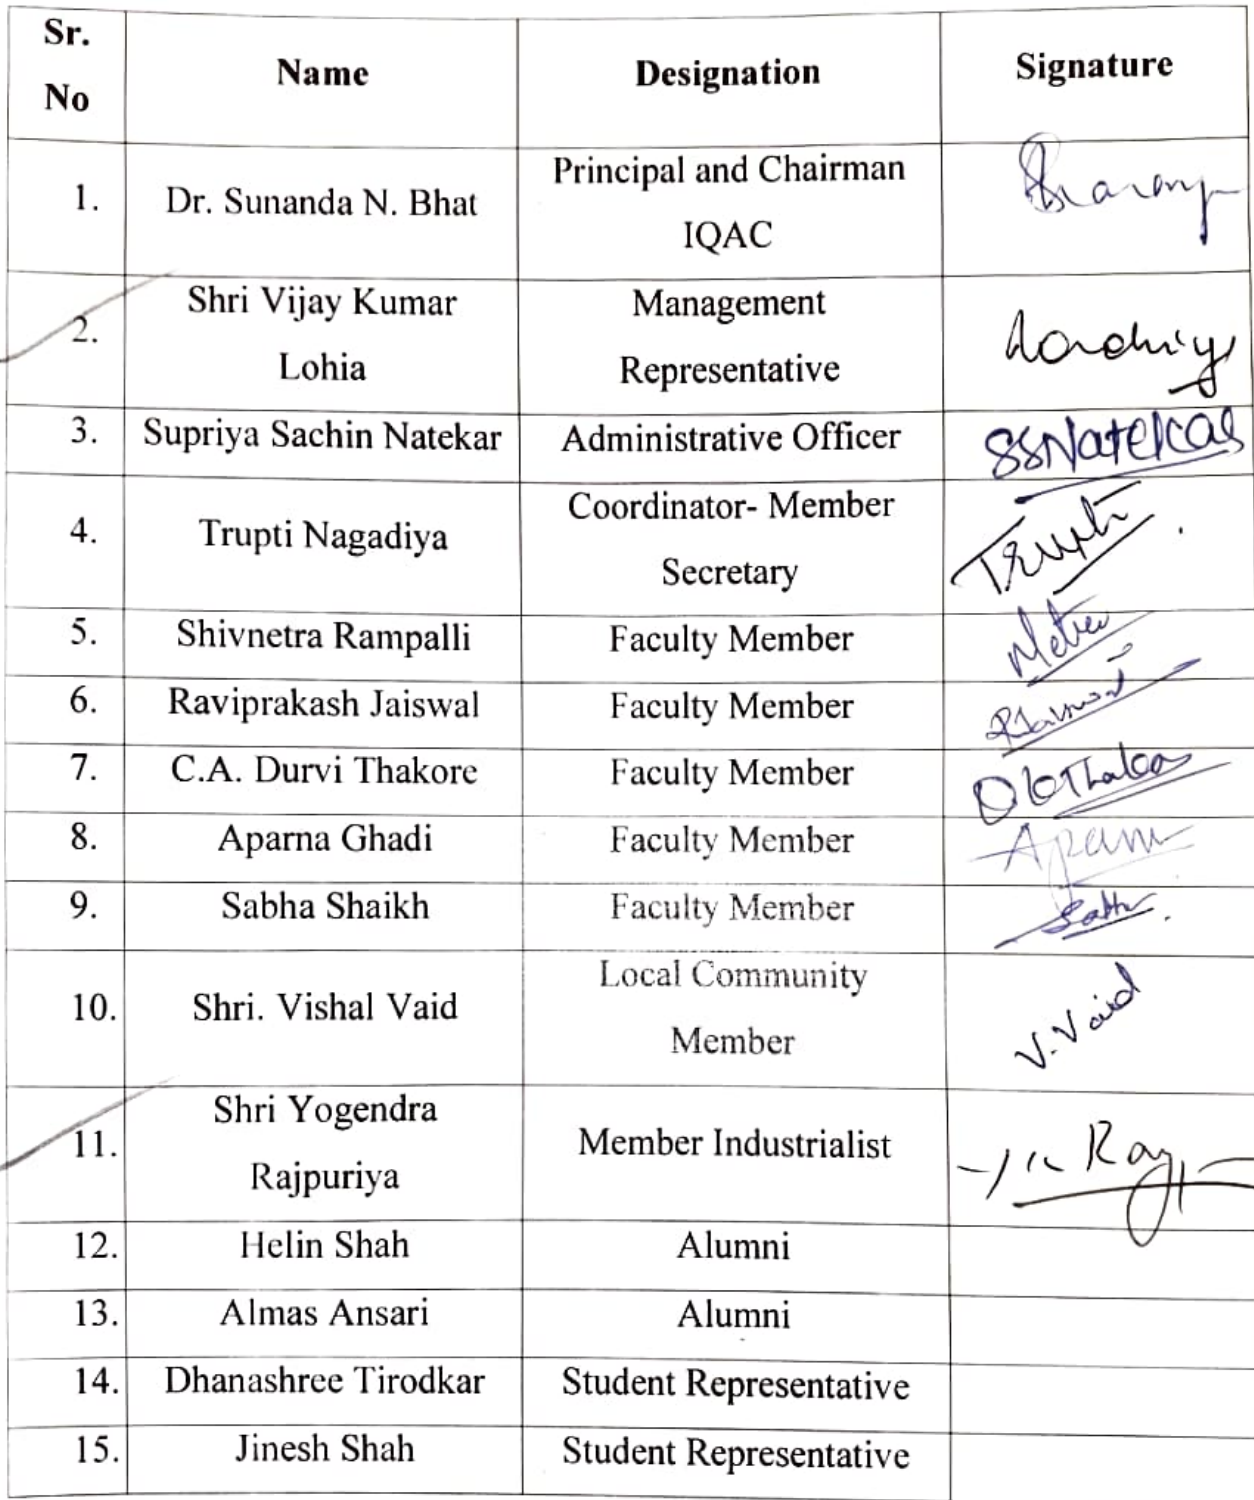 Sr.
No
Name
Designation
Signature
1.
Dr. Sunanda N. Bhat
Principal and Chairman
IQAC
2.
Shri Vijay Kumar
Lohia
Management
Representative
3.
Supriya Sachin Natekar
Administrative Officer
SSNatekar
4.
Trupti Nagadiya
Coordinator- Member
Secretary
Trupti
5.
Shivnetra Rampalli
Faculty Member
6.
Raviprakash Jaiswal
Faculty Member
7.
C.A. Durvi Thakore
Faculty Member
8.
Aparna Ghadi
Faculty Member
9.
Sabha Shaikh
Faculty Member
10.
Shri. Vishal Vaid
Local Community
Member
V. Vaid
11.
Shri Yogendra
Rajpuriya
Member Industrialist
12.
Helin Shah
Alumni
13.
Almas Ansari
Alumni
14.
Dhanashree Tirodkar
Student Representative
15.
Jinesh Shah
Student Representative